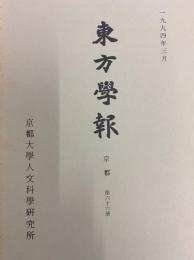 一九九四年三月
東方學報
京都
第六十六册
京都大學人文科學研究所